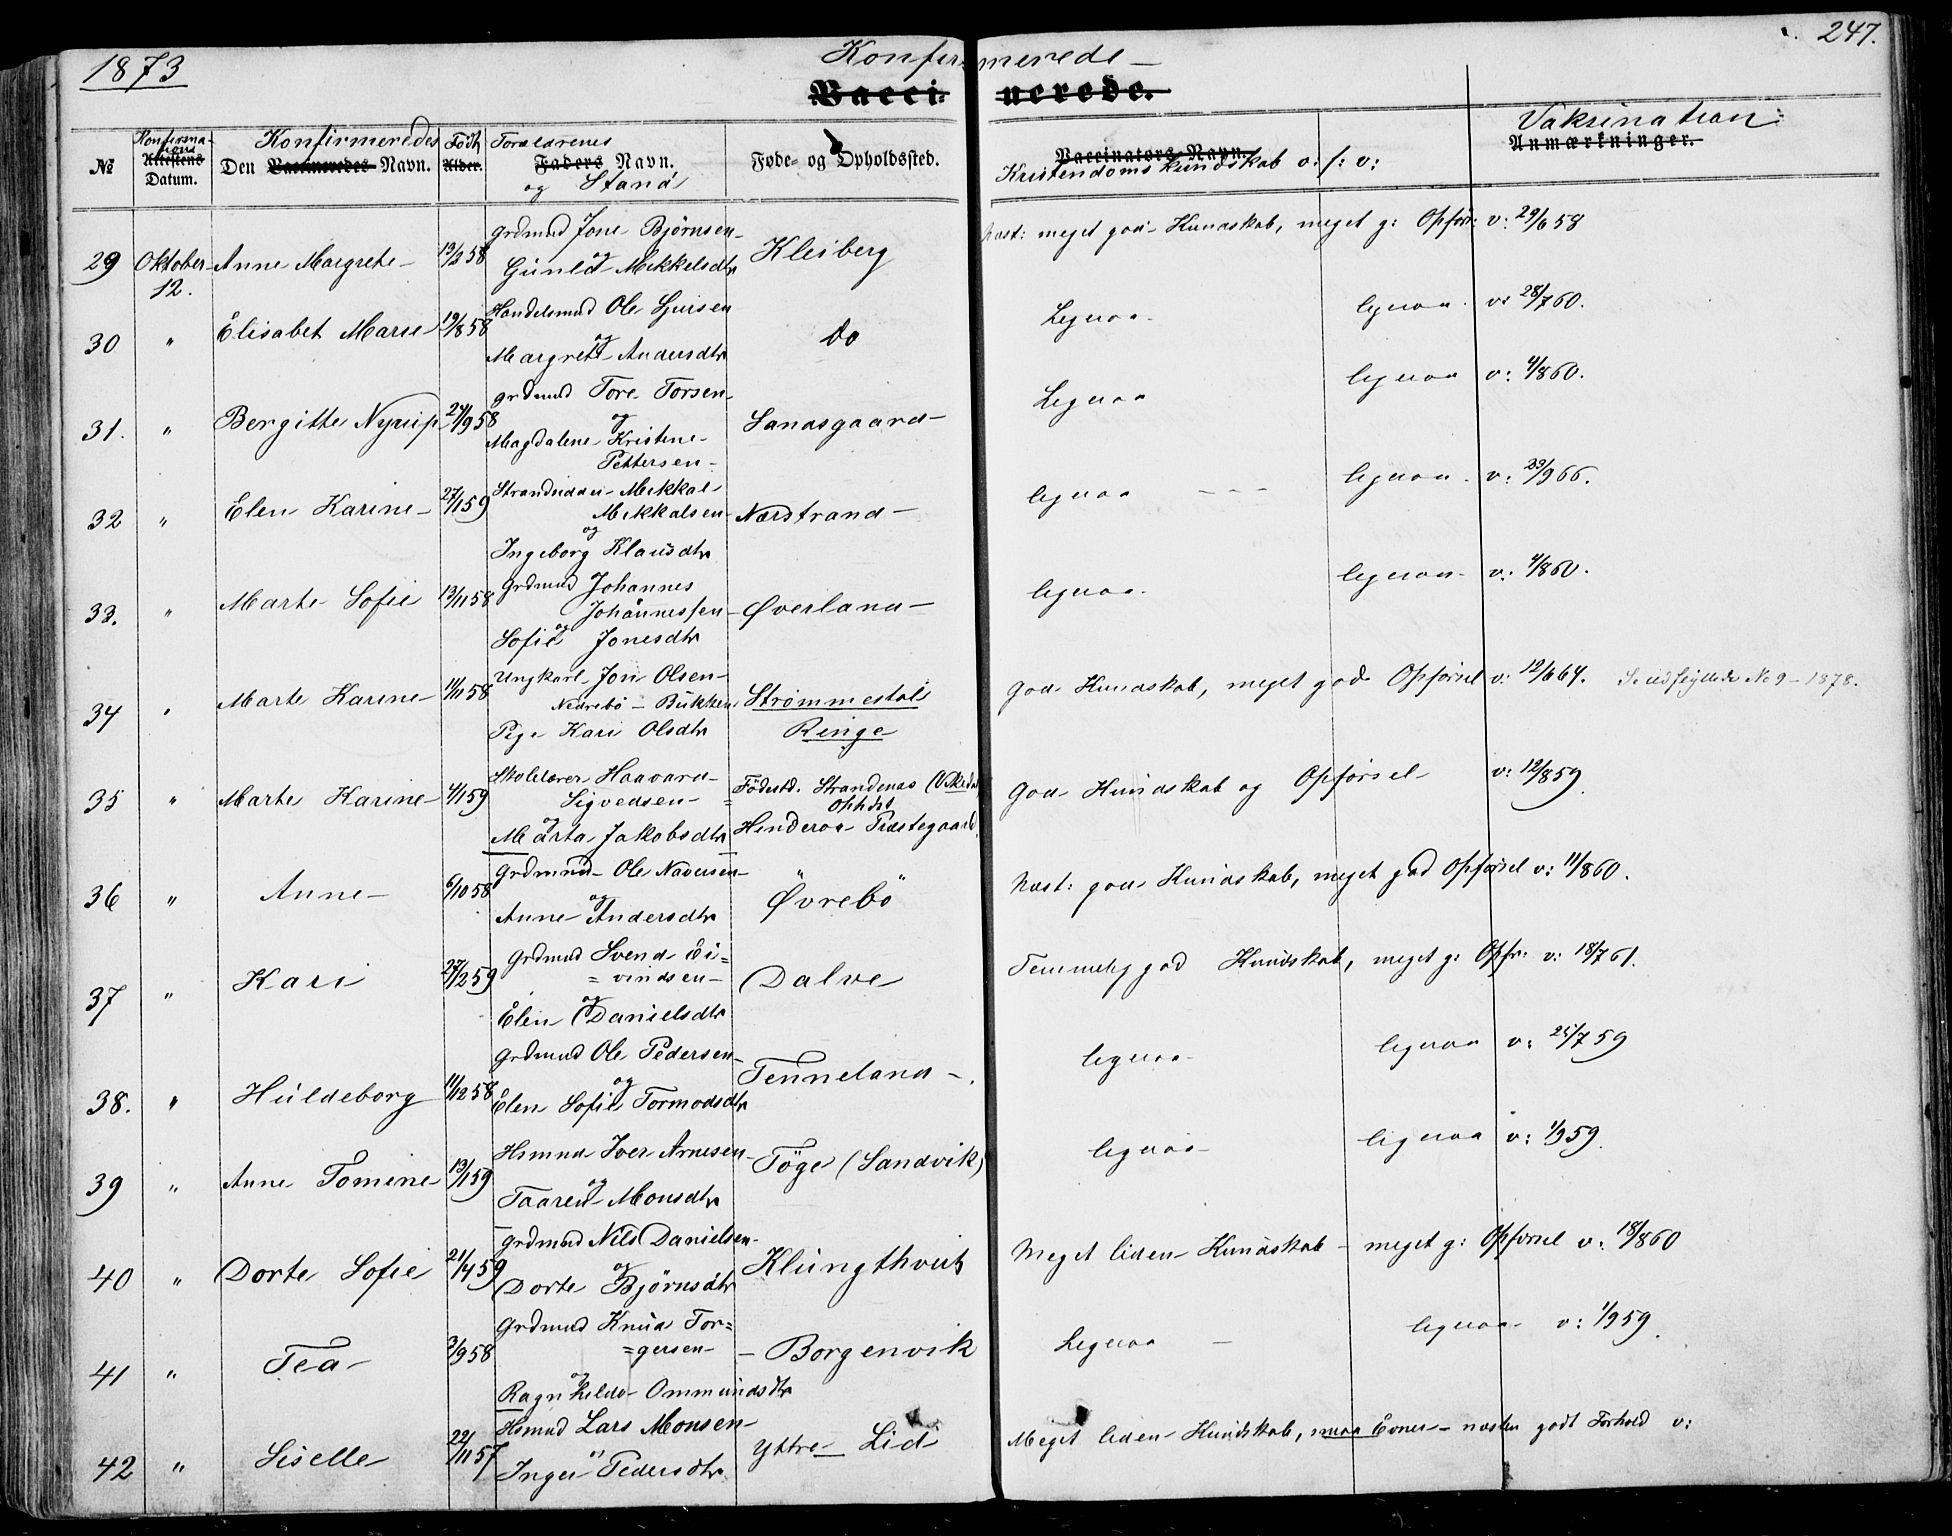 1873
Konfirmerede
247.
Vaccinerede.
No
Konfirmations
Attestens
Datum.
Konfirmeredes
Den Vaccineredes Navn.
Født
Alder.
Forældrenes
Faders Navn.
og Stand
Føde- og Opholdssted.
Vaccinators Navn.
Kristendomskundskab o: s: v:
Vaksination
Anmærkninger.
29 Oktober 12. Anne Margrete 13/2 58 Grdmnd Jone Bjørnsen og Gunla Mikkelsdtr Kleiberg Næst: meget god Kundskab, meget g: Opfør: v: 29/6 58
30 " Elisabet Marie 19/8 58 Handelsmnd Ole og Margrete Andersdtr Do Ligesaa ligesaa v: 28/7 60.
31. " Bergitte Nyrup 24/9 58 Grdmnd Tore Torsen og Magdalene Kristine Pettersen Sandsgaard Ligesaa ligesaa v: 4/8 60.
32 " Elen Karine 27/1 59 Strandsidder Mikkal Mikkalsen og Ingeborg Klausdtr Nærstrand ligesaa - - - ligesaa v: 23/9 66.
33. " Marte Sofie 13/11 58 Grdmnd Johannes Johannessen og Sofie Jonesdtr Øverland ligesaa ligesaa v: 4/8 60.
34 " Marte Karine 11/11 58 Ungkarl Jon Olsen Nedrebø - Pige Kari Olsdtr Strømmestøl Ringe God Kundskab, meget god Opførsel v: 12/6 64. No 9 - 1878.
35 " Marte Karine 4/1 59 Skolelærer Haavard Sigvedsen og Marta Jakobsdtr Födestd. Strandenes (Vikedal) Ophdst Hinderaa Prestegaard God Kundskab og Opførsel v: 12/8 59.
36 " Anne 6/10 58 Grdmnd Ole og Anne Andersdtr Övrebö Næst: god Kundskab, meget god Opførsel v: 11/8 60.
37 " Kari 27/2 59 Grdmnd Svend Ei= =vindsen og Elen Danielsdtr Dalve Temmelig god Kundskab, meget g: Opfør: v: 18/7 61.
38. " Huldeborg 11/12 58 Grdmnd Ole Pedersen og Elen Sofie Tormodsdtr Tenneland ligesaa ligesaa v: 25/7 59
39 " Anne Tomine 13/1 59 Hsmnd Iver Arnesen og Taaren Monsdtr Töge (Sandvik) ligesaa ligesaa v: 1/9 59.
40 " Dorte Sofie 21/4 59 Grdmnd Nils Danielsen og Dorte Bjørnsdtr Klungthveit Meget liden Kundskab - meget g: Opførsel v: 18/8 60
41 " Tea 3/9 58 Grdmnd Knud Tor= =gersen og Ragnhilda Ommundsdtr Borgenvik Ligesaa - ligesaa v: 1/9 59.
42 " Siselle 22/11 57 Hsmnd Lars Monsen " Inger Pedersdtr Yttre Lid Meget liden Kundskab, smaa Evner - næsten godt Forhold v: